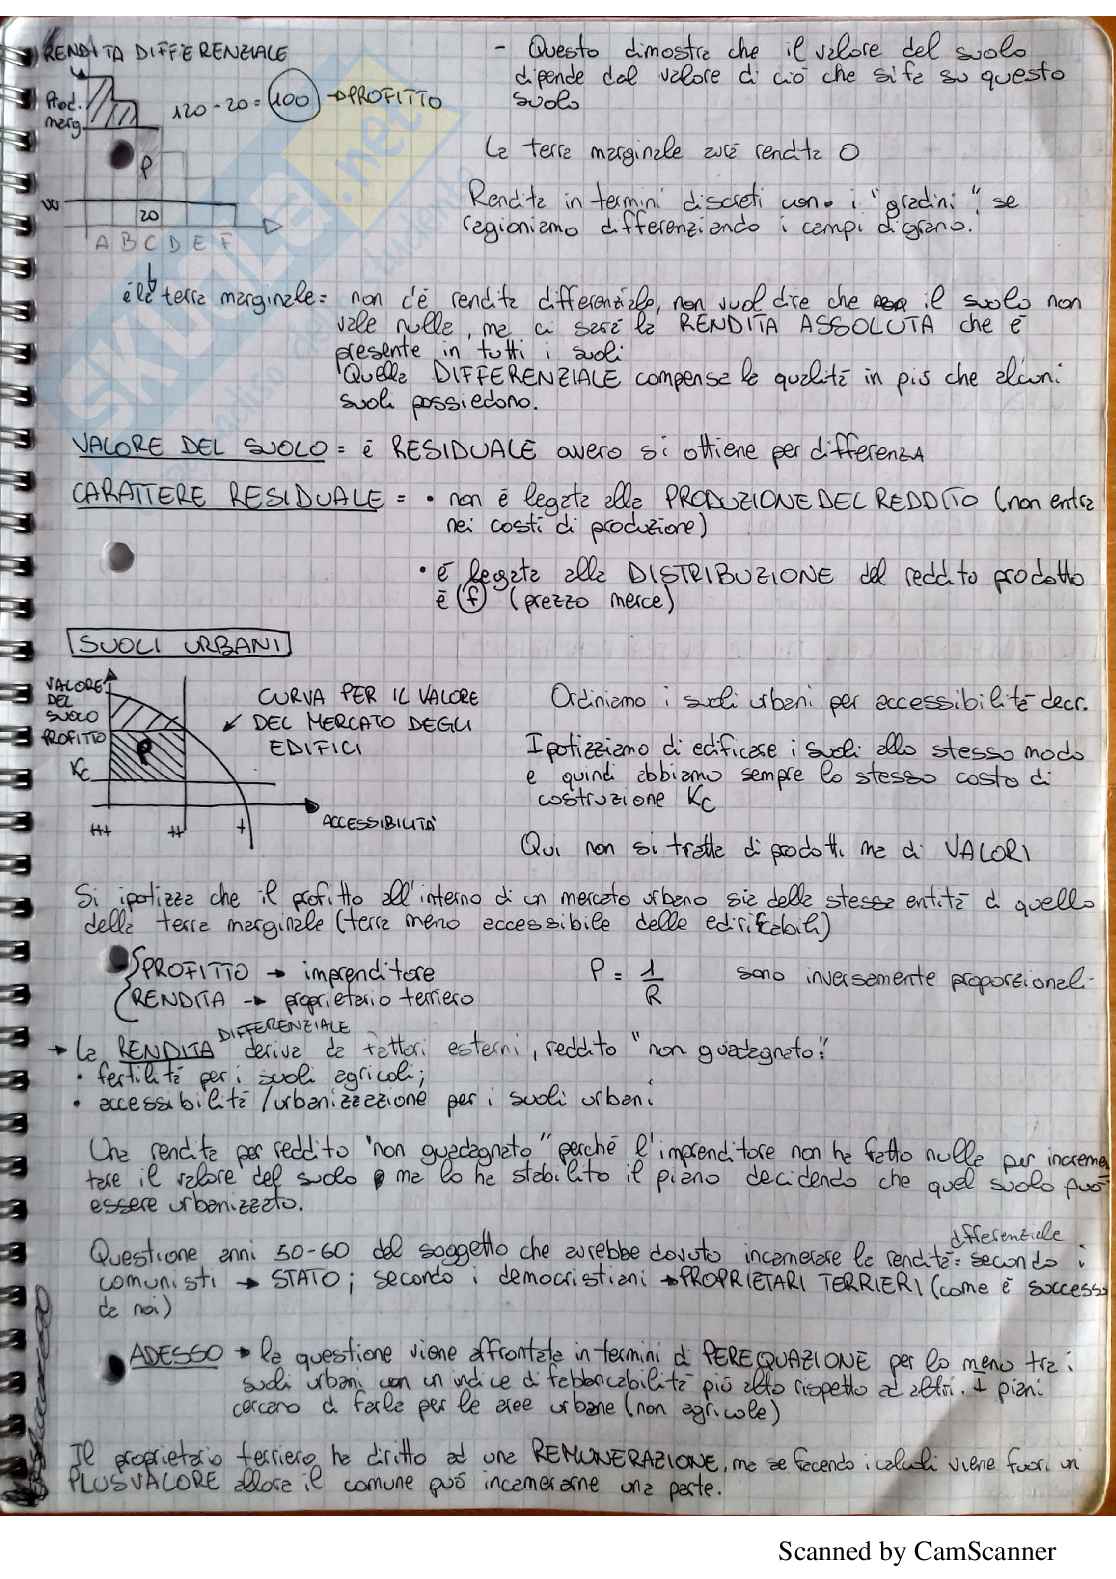 RENDITA DIFFERENZIALE
Prod.
marg.
120 - 20 = 100 → PROFITTO
P
W
20
A B C D E F
- Questo dimostra che il valore del suolo
dipende dal valore di ciò che si fa su questo
suolo
La terra marginale avrà rendita 0
Rendita in termini discreti con i "gradini", se
ragioniamo differenziando i campi di grano.
è la terra marginale = non c'è rendita differenziale, non vuol dire che il suolo non
vale nulla, ma ci sarà la RENDITA ASSOLUTA che è
presente in tutti i suoli
Quella DIFFERENZIALE compensa la qualità in più che alcuni
suoli possiedono.
VALORE DEL SUOLO = è RESIDUALE ovvero si ottiene per differenza
CARATTERE RESIDUALE = • non è legata alla PRODUZIONE DEL REDDITO (non entra
nei costi di produzione)
• è legata alla DISTRIBUZIONE del reddito prodotto
è f (prezzo merce)
SUOLI URBANI
VALORE
DEL
SUOLO
PROFITTO
Kc
P
+++ ++ +
ACCESSIBILITÀ
CURVA PER IL VALORE
DEL MERCATO DEGLI
EDIFICI
Ordiniamo i suoli urbani per accessibilità decr.
Ipotizziamo di edificare i suoli allo stesso modo
e quindi abbiamo sempre lo stesso costo di
costruzione Kc
Qui non si tratta di prodotti ma di VALORI
Si ipotizza che il profitto all'interno di un mercato urbano sia della stessa entità di quello
della terra marginale (terra meno accessibile delle edificabili)
PROFITTO → imprenditore
RENDITA → proprietario terriero
P = 1/R sono inversamente proporzionali
→ La RENDITA DIFFERENZIALE deriva da fattori esterni, reddito "non guadagnato":
• fertilità per i suoli agricoli;
• accessibilità / urbanizzazione per i suoli urbani
Una rendita per reddito "non guadagnato" perché l'imprenditore non ha fatto nulla per incremen
tare il valore del suolo ma lo ha stabilito il piano decidendo che quel suolo può
essere urbanizzato.
Questione anni 50-60 del soggetto che avrebbe dovuto incamerare la rendita differenziale: secondo i
comunisti → STATO; secondo i democristiani → PROPRIETARI TERRIERI (come è successo
da noi)
ADESSO → la questione viene affrontata in termini di PEREQUAZIONE per lo meno tra i
suoli urbani con un indice di fabbricabilità più alto rispetto ad altri. I piani
cercano di farla per le aree urbane (non agricole)
Il proprietario terriero ha diritto ad una REMUNERAZIONE, ma se facendo i calcoli viene fuori un
PLUSVALORE allora il comune può incamerarne una parte.
SKUOLA.net
Scanned by CamScanner